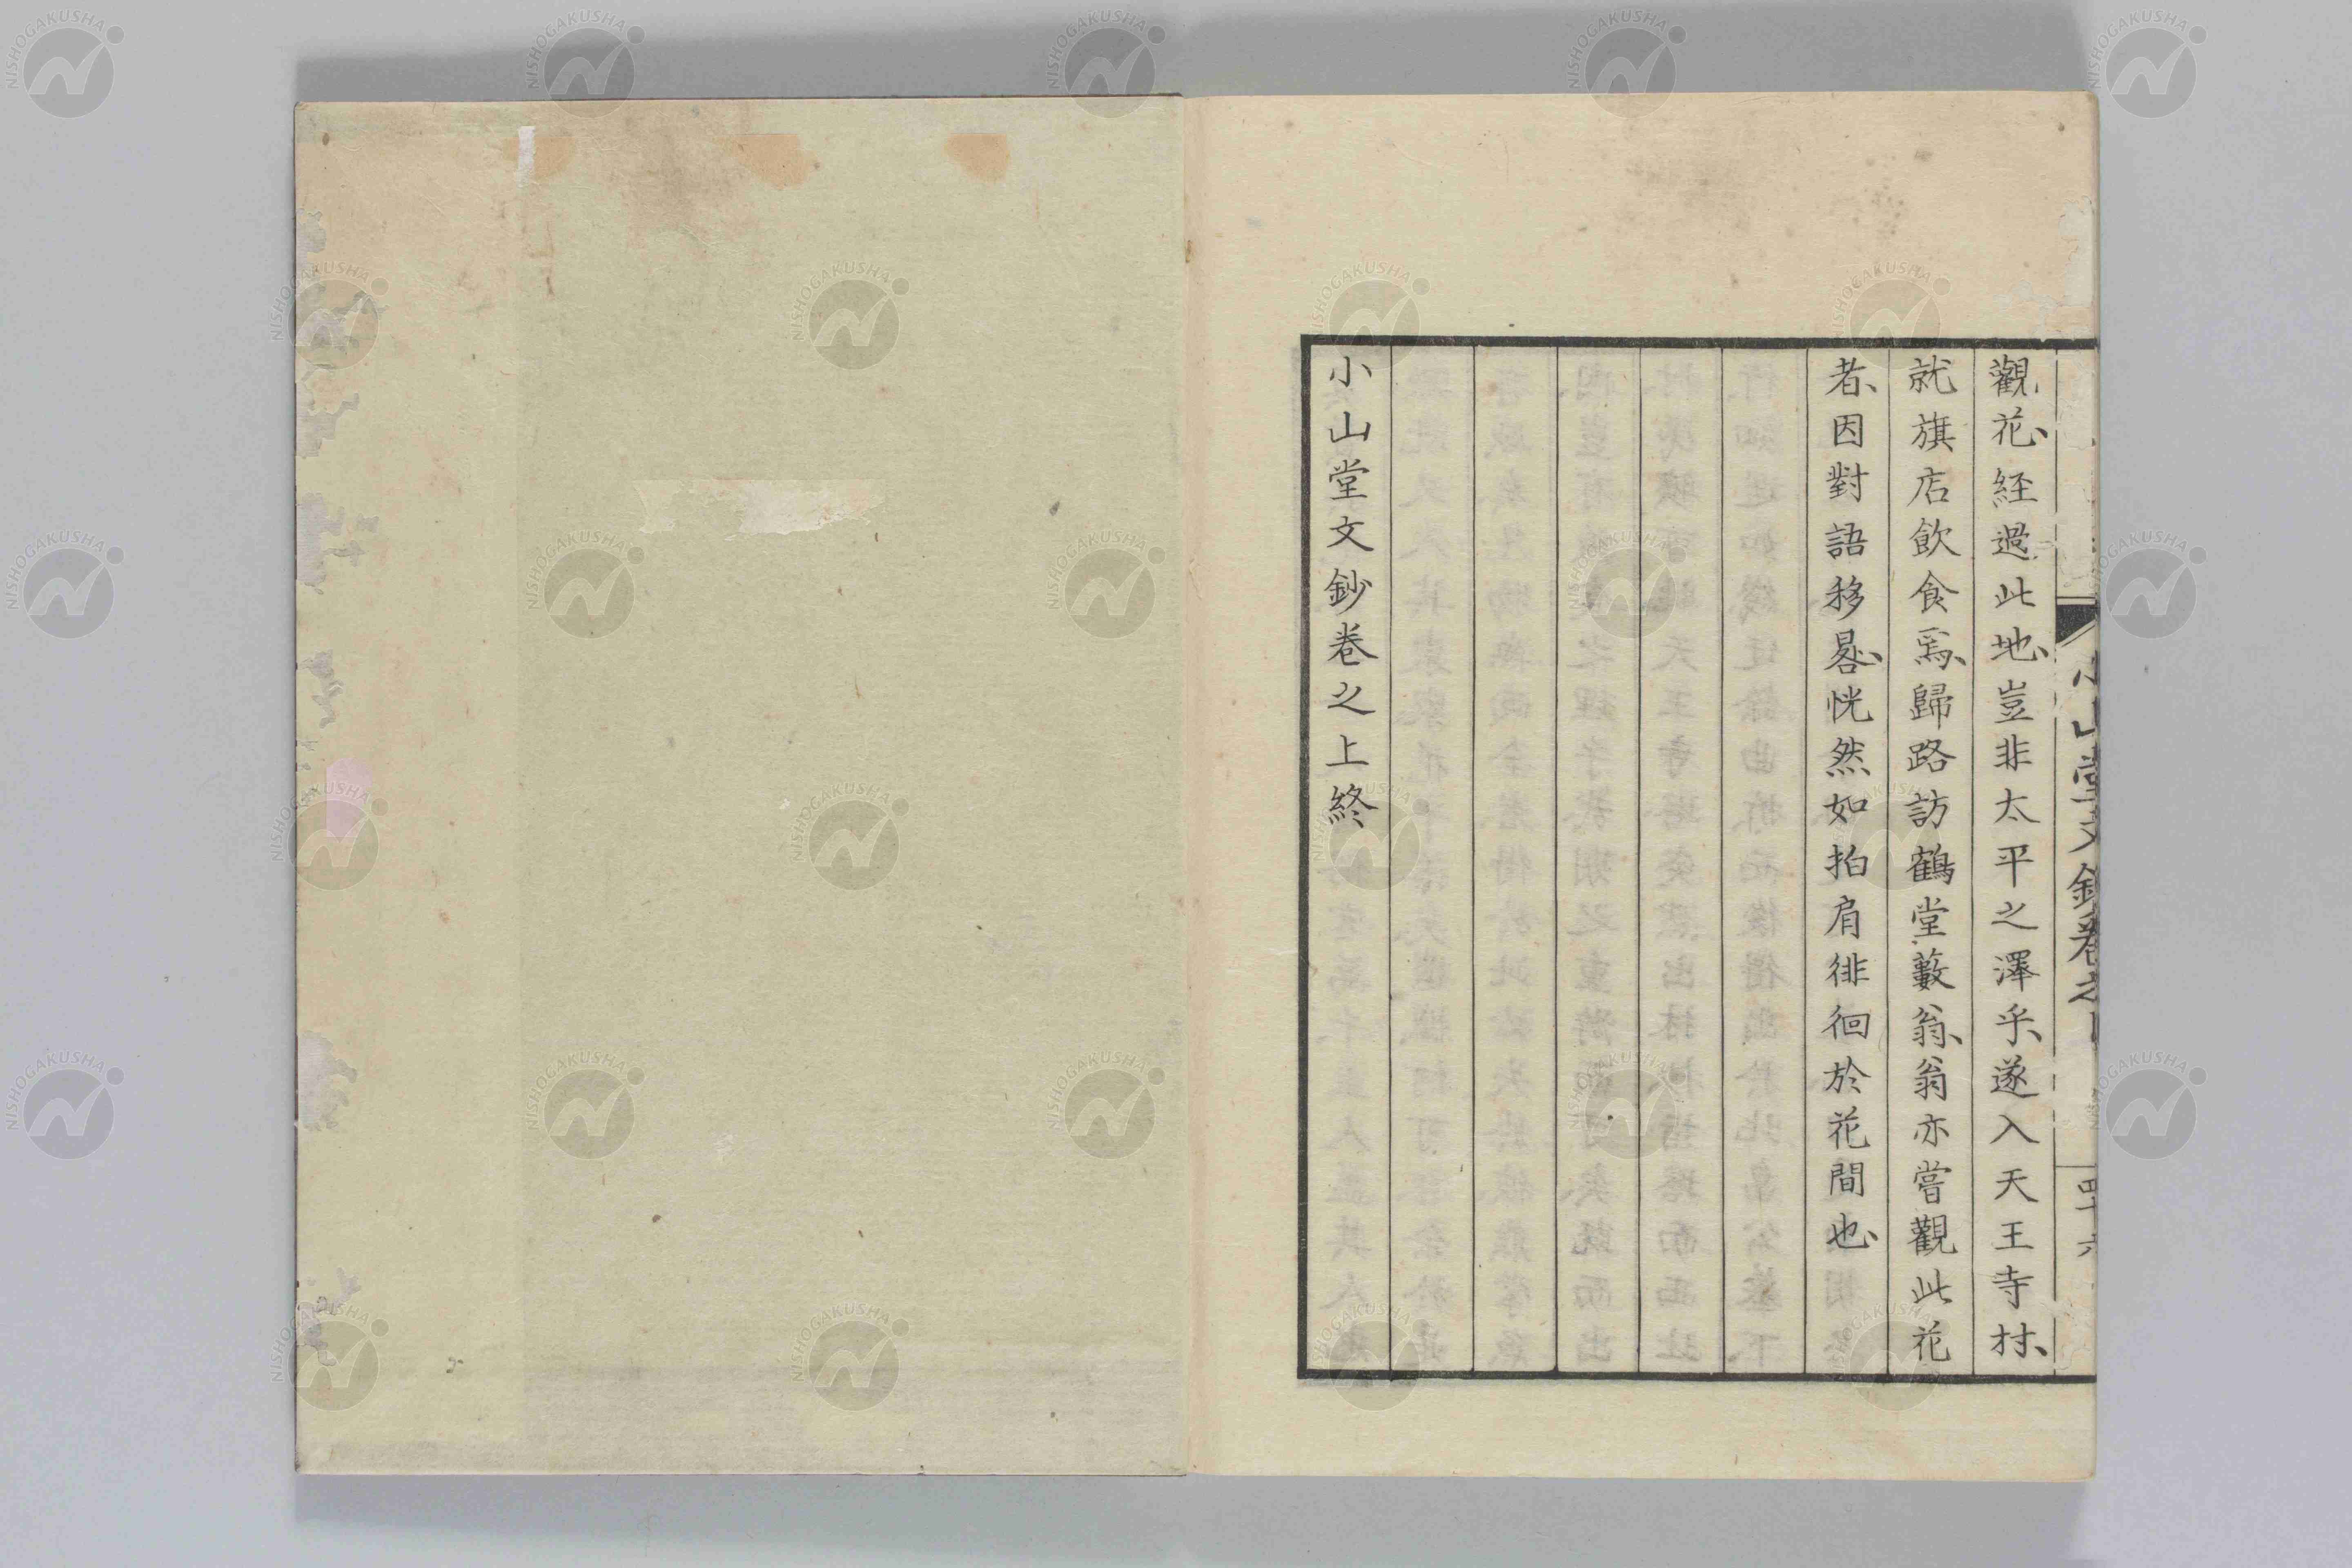 觀花、経過此地、豈非太平之澤乎、遂入天王寺村、
就旗店飲食焉、歸路訪鶴堂藪翁、翁亦嘗觀此花
者、因對語移晷、恍然如拍肩徘徊於花間也、
小山堂文鈔卷之上終
小山堂文鈔卷之
四十六
NISHOGAKUSHA